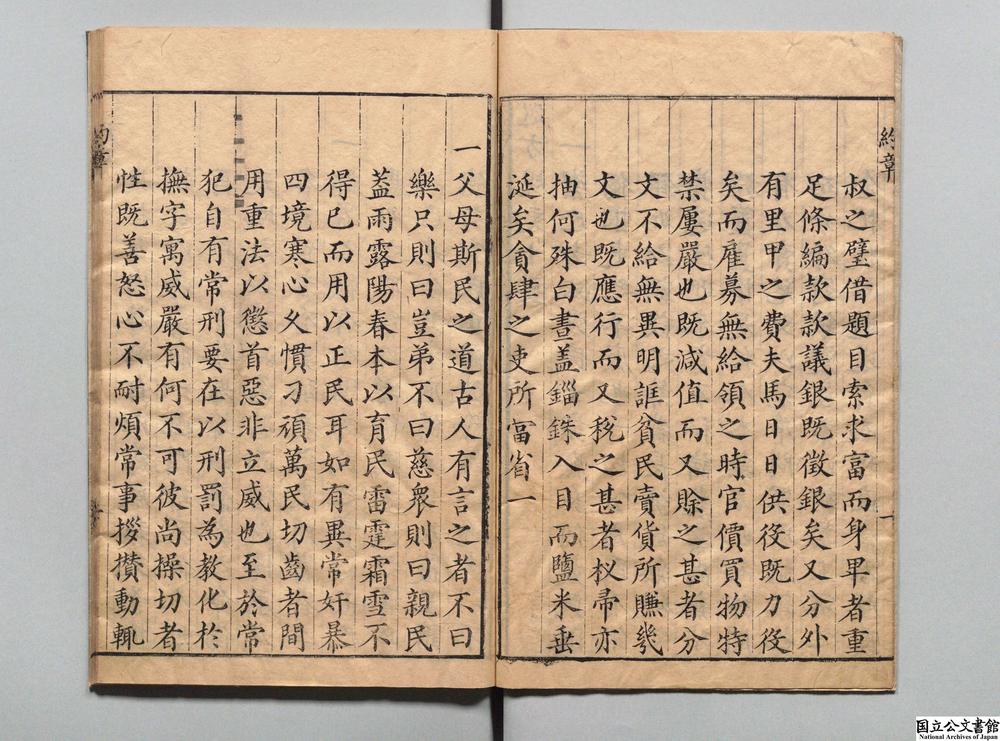 約章
叔之璧借題目索求富而身早者重
足條編款款議銀既徵銀矣又分外
有里甲之費夫馬日日供役既力役
矣而雇募無給領之時官價買物特
禁屢嚴也既減值而又賒之甚者分
文不給無異明誆貧民賣貨所賺幾
文也既應行而又稅之甚者杈帚亦
抽何殊白晝盖錙銖入目而鹽米垂
涎矣貪肆之吏所當省一
一
一父母斯民之道古人有言之者不曰
樂只則曰豈弟不曰慈衆則曰親民
葢雨露陽春本以育民雷霆霜雪不
得已而用以正民耳如有異常奸暴
四境寒心久慣刁頑萬民切齒者間
用重法以懲首惡非立威也至於常
犯自有常刑要在以刑罰為教化於
撫字寓威嚴有何不可彼尚操切者
性既善怒心不耐煩常事拶攢動輒
約章
国立公文書館
National Archives of Japan